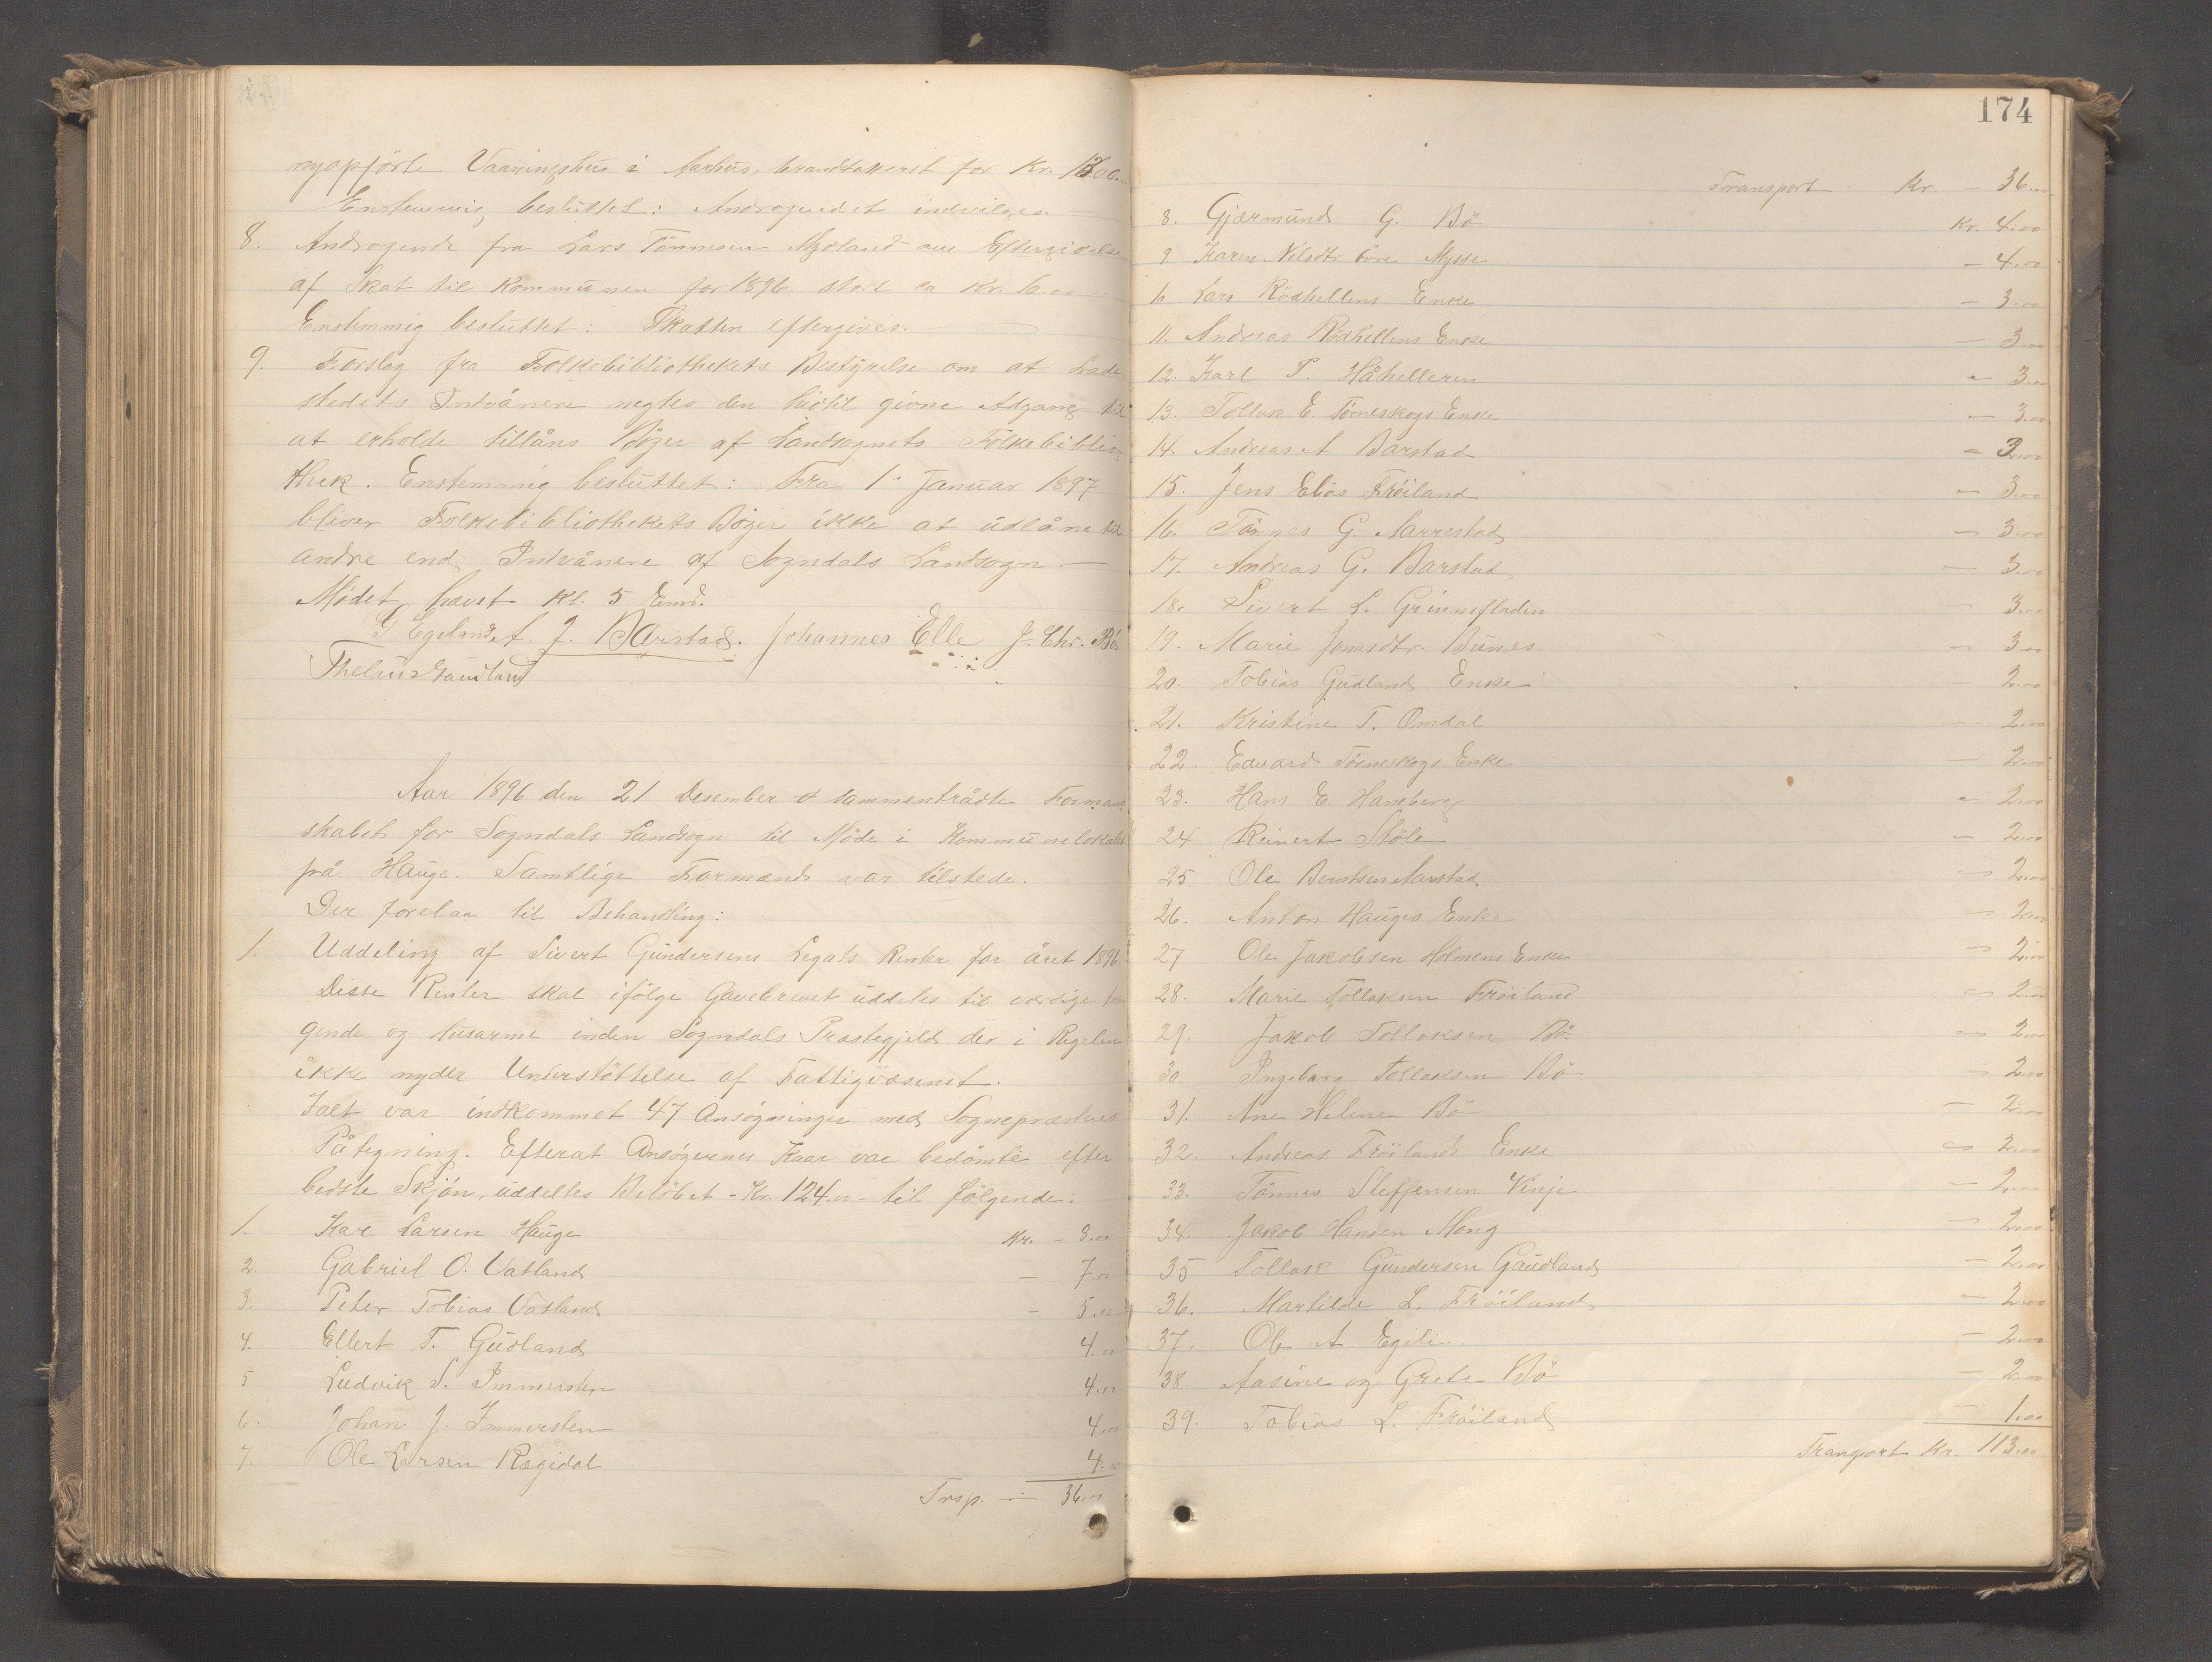 nyopførte Vaaningshus i Aarhus, brandtakseret for Kr. 1300.
Enstemmig besluttet: Andragendet indvilges.
8. Andragende fra Lars Tönnesen Mysland om Eftergivelse
af Skat til Kommunen for 1896 stort ca Kr. 6.00
Enstemmig besluttet: Skatten eftergives.
9. Forslag fra Folkebibliothekets Bestyrelse om at Lade
stedets Indvånere negtes den hidtil givne Adgang til
at erholde tillåns Bøger af Landsognets Folkebiblio-
thek. Enstemmig besluttet: Fra 1. Januar 1897
bliver Folkebibliothekets Bøger ikke at udlåne til
andre end Indvånere af Sogndals Landsogn.
Mødet hævet Kl. 5 Emd.
G Egeland A. J. Barstad. Johannes Elle J. Chr. Bö
Gaudland
Aar 1896 den 21 Desember sammentrådte Formand
skabet for Sogndals Landsogn til Møde i Kommunelokalet
på Hauge. Samtlige Formænd var tilstede.
Der forelaa til Behandling:
1. Uddeling af Sivert Gundersens Legats Renter for året 1896.
Disse Renter skal ifølge Gavebrevet uddeles til værdige træn
gende og husarme inden Sogndals Præstegjeld der i Regelen
ikke nyder Understøttelse af Fattigvæsenet.
Ialt var indkommet 47 Ansøgninger med Sognepræstens
Påtegning. Efterat Ansøgernes Kaar var bedømte efter
bedste Skjön, uddeltes Beløbet - Kr. 124.00 - til følgende:
1. Kar Larsen Hauge Kr. - 8.00
2. Gabriel O. Vatland — 7.00
3. Peter Tobias Vatland - 5.00
4. Ellert T. Gudland 4.00
5 Ludvik S. Immersten 4.00
6. Johan J. Immersten 4.00
7. Ole Larsen Rægidal 4.00
Trsp. — 36.00
174
Transport Kr. — 36.00
8. Gjærmund G. Bö Kr. 4.00
9. Karen Nilsdtr Mysse - 4.00
10 Lars Rödhellens Enke - 3.00
11. Andreas Rödhellens Enke - 3.00
12. Karl P. Håhelleren - 3.00
13. Tollak E. Törneskogs Enke - 3.00
14. Andreas A. Barstad - 3.00
15. Jens Elias Fröiland - 3.00
16. Tönnes G. Aarrestad - 3.00
17. Andreas G. Barstad - 3.00
18. Sivert L. Grunnefladen - 3.00
19. Marie Jonasdtr. Bunes - 3.00
20. Tobias Gudlands Enke - 2.00
21. Kristine T. Omdal - 2.00
22. Edvard Törneskogs Enke - 2.00
23. Hans E. Hamberg - 2.00
24 Reinert Stöle - 2.00
25 Ole Berntsen Aarstad - 2.00
26. Anton Hauges Enke - 2.00
27 Ole Jakobsen Holmens Enke - 2.00
28. Marie Tollaksen Fröiland - 2.00
29. Jakob Tollaksen Bö - 2.00
30. Ingeborg Tollaksen Bö - 2.00
31. Ane Helene Bö - 2.00
32. Andreas Fröilands Enke - 2.00
33. Tönnes Steffensen Vinje - 2.00
34. Jakob Hansen Mong - 2.00
35 Tollak Gundersen Gaudland - 2.00
36. Martilde L. Fröiland - 2.00
37. Ole A Egeli - 2.00
38. Aasine og Grete Bö - 2.00
39. Tobias L. Fröiland - 1.00
Transport Kr. 113.00